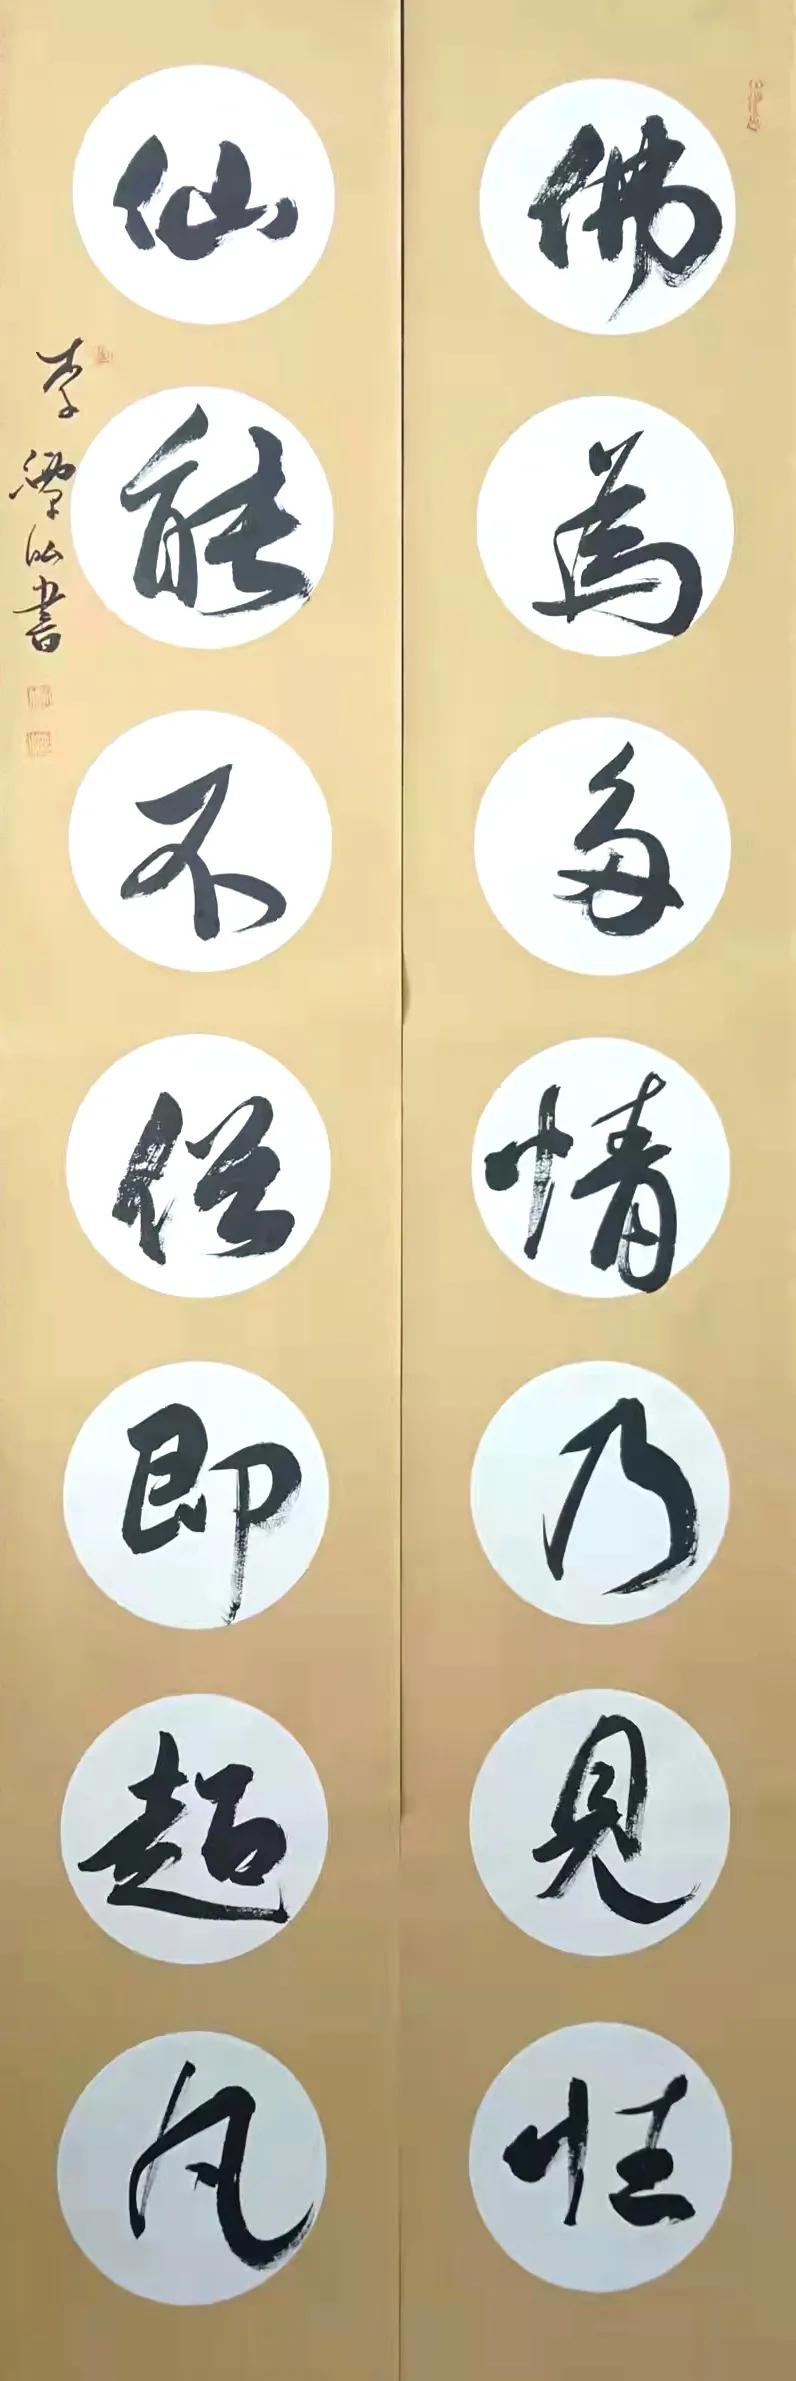 佛為多情乃見性
仙能不俗即超凡
李潭山書